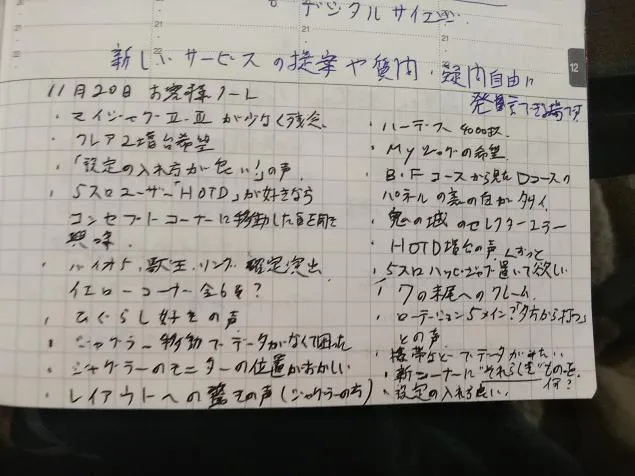 デジタルサイエ
新しいサービスの提案や質問・疑問自由に
発言できる場です
12
11月20日 お客様ノート
・マイジャグラーⅡ、Ⅲが少なく残念
・クレア2増台希望
・「設定の入れ方が良い!」の声
・5スロユーザー「HOTD」が好きなら
コンセプトコーナーに移動した
興味.
・バイオ5、獣王、リング 確定演出
イエローコーナー全6を?
・ひぐらし好きの声
・ジャグラー移動でデータがなくて困った
・ジャグラーのモニターの位置がおかしい
・レイアウトへの驚きの声(ジャグラーの方)
・ハーデス 4000枚.
・Myジャグの希望.
・B.FコースからみたDコースの
パネルの裏の色がダサイ
・鬼の城のセレクターエラー
・HOTD増台の声 ずっと
・5スロハッピージャグ置いて欲しい
・7の末尾へのクレーム.
・ローテーション5メイン?「夕方から打つ」
との声.
・携帯などでデータがみたい
・新コーナーに"それらしき"ものを
何?
・設定の入れ方良い.